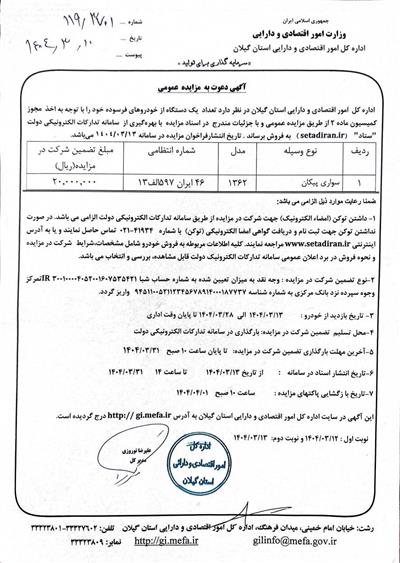 جمهوری اسلامی ایران
وزارت امور اقتصادی و دارایی
اداره کل امور اقتصادی و دارایی استان گیلان
شماره :
تاریخ : ۱۴۰۴,۳,۱۰
پیوست :
«سرمایه گذاری برای تولید»
آگهی دعوت به مزایده عمومی
اداره کل امور اقتصادی و دارایی استان گیلان در نظر دارد تعداد یک دستگاه از خودروهای فرسوده خود را با توجه به اخذ مجوز
کمیسیون ماده ۲ از طریق مزایده عمومی و با جزئیات مندرج در اسناد مزایده با بهره‌گیری از سامانه تدارکات الکترونیکی دولت
"ستاد" (setadiran.ir) به فروش برساند . تاریخ انتشار فراخوان مزایده در سامانه ۱۴۰۴/۰۳/۱۳ می‌باشد.
ردیف نوع وسیله مدل شماره انتظامی مبلغ تضمین شرکت در مزایده(ریال)
۱ سواری پیکان ۱۳۶۲ ۴۶ ایران ۵۹۷الف۱۳ ۲۰,۰۰۰,۰۰۰
ضمنا رعایت موارد ذیل الزامی می باشد:
۱- داشتن توکن (امضاء الکترونیک) جهت شرکت در مزایده از طریق سامانه تدارکات الکترونیکی دولت الزامی می باشد. در صورت
نداشتن توکن جهت ثبت نام و دریافت گواهی امضای الکترونیکی (توکن) با شماره ۴۱۹۳۴-۰۲۱ تماس حاصل نمایند و یا به آدرس
اینترنتی www.setadiran.ir مراجعه نمایند. کلیه اطلاعات مربوطه به فروش خودرو شامل مشخصات،شرایط شرکت در مزایده
و نحوه فروش در برد اعلان عمومی سامانه تدارکات الکترونیکی دولت قابل مشاهده، بررسی و انتخاب می باشد.
۲-نوع تضمین شرکت در مزایده : وجه نقد به میزان تعیین شده به شماره حساب شبا IR۳۰۰۱۰۰۰۰۴۰۵۲۰۰۱۶۰۷۵۳۵۴۲۱ تمرکز
وجوه سپرده نزد بانک مرکزی به شماره شناسه واریز گردد.
۳- تاریخ بازدید از خودرو : ۱۴۰۴/۰۳/۱۳ الی ۱۴۰۴/۰۳/۲۸ تا پایان وقت اداری
۴- محل تسلیم تضمین شرکت در مزایده: بارگذاری در سامانه تدارکات الکترونیکی دولت
۵-آخرین مهلت بارگذاری تضمین شرکت در مزایده: تا پایان ساعت ۱۰ صبح ۱۴۰۴/۰۳/۳۱
۶-تاریخ انتشار اسناد در سامانه : از تاریخ ۱۴۰۴/۰۳/۱۳ تا ساعت ۱۴ ۱۴۰۴/۰۳/۳۱
۷-تاریخ با زگشایی پاکتهای مزایده : ساعت ۱۰ صبح ۱۴۰۴/۰۴/۰۱
این آگهی در سایت اداره کل امور اقتصادی و دارایی استان گیلان به آدرس http:// gi.mefa.ir درج گردیده است.
نوبت اول : ۱۴۰۴/۰۳/۱۲ و نوبت دوم: ۱۴۰۴/۰۳/۱۳
علیرضا نوروزی
مدیر کل
اداره کل
امور اقتصادی و دارائی
استان گیلان
رشت: خیابان امام خمینی، میدان فرهنگ، اداره کل امور اقتصادی و دارایی استان گیلان تلفن: ۳۳۳۲۷۶۰۲-۳۳۳۲۳۸۰۱
gilinfo@mefa.gov.ir http://gi.mefa.ir نمابر: ۳۳۳۲۳۸۰۹